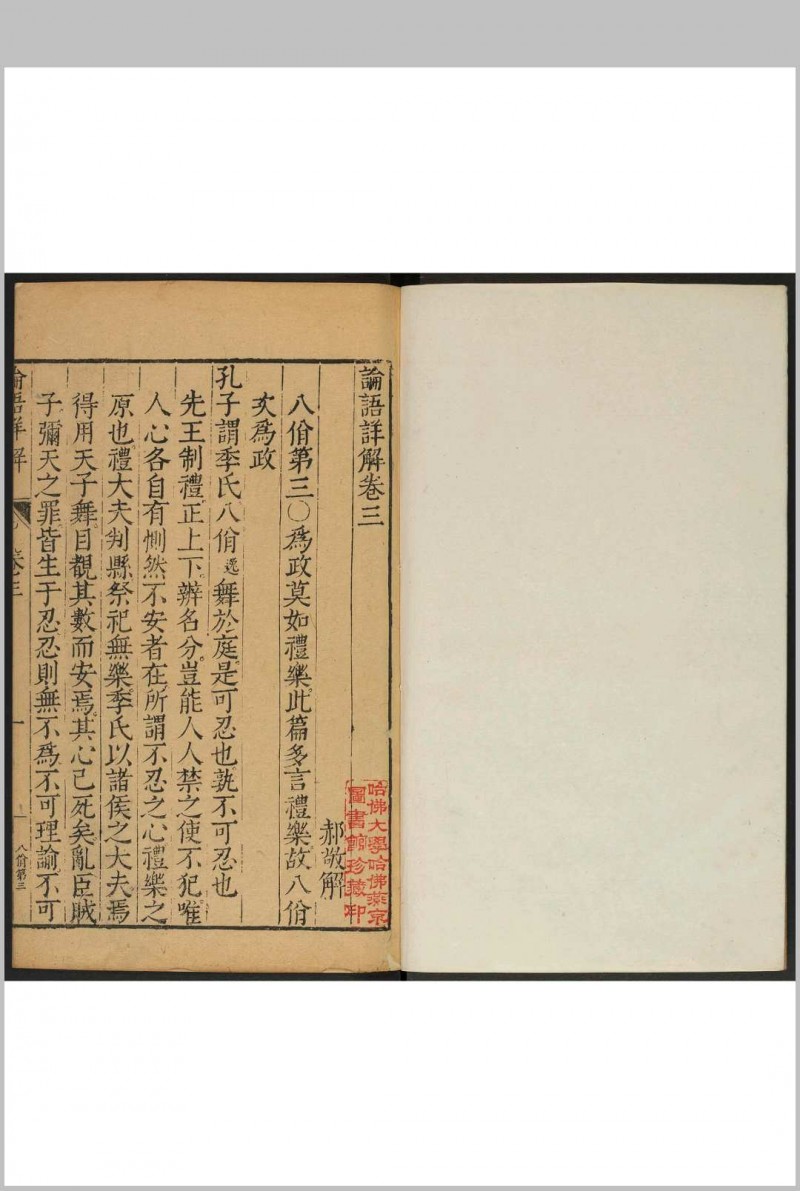 論語詳解卷三
郝敬解
哈佛大學哈佛燕京
圖書館珍藏印
八佾第三○爲政莫如禮樂此篇多言禮樂故八佾
次爲政
孔子謂季氏八佾逸舞於庭是可忍也孰不可忍也
先王制禮正上下辨名分豈能人人禁之使不犯唯
人心各自有惻然不安者在所謂不忍之心禮樂之
原也禮大夫判縣祭祀無樂季氏以諸侯之大夫焉
得用天子舞目覩其數而安焉其心已死矣亂臣賊
子彌天之罪皆生于忍忍則無不爲不可理諭不可
論語詳解 卷三 一 八佾第三